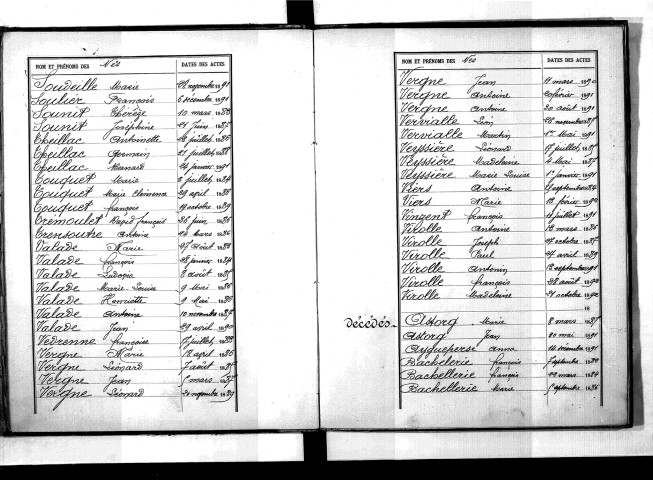 NOM ET PRÉNOMS DES Nés DATES DES ACTES
Soudeille Marie 22 novembre 1891
Soulier François 6 décembre 1891
Sounit Thérèze 10 mars 1886
Sounit Joséphine 21 Juin 1887
Theillac Antoinette 18 juillet 1885
Theillac Germain 21 juillet 1888
Theillac Bernard 24 janvier 1891
Touquet Marie 2 juillet 1884
Touquet Marie Clémence 29 avril 1886
Touquet françois 19 octobre 1889
Tremoulet françois 26 juin 1886
Trensoutre Antoine 22 Mars 1886
Valade Marie 27 août 1883
Valade françois 28 janvier 1884
Valade 8 août 1885
Valade Marie-Louise 9 Mai 1886
Valade Henriette 9 Mai 1886
Valade Antoine 10 novembre 1887
Valade Jean 29 avril 1890
Vedrenne françoise 17 juillet 1888
Vergne Marie 18 april 1885
Vergne Léonard 7 août 1885
Vergne Jean mars 1887
Vergne Léonard 21 novembre 1889
NOM ET PRÉNOMS DES Nés DATES DES ACTES
Vergne Jean 11 mars 1890
Vergne Antoine février 1891
Vergne Antoine 20 août 1891
Vervialle 26 novembre 1885
Vervialle Martin 1er Mai 1891
Veyssière Léonard 17 juillet 1885
Veyssière Madeleine 4 Mai 1887
Veyssière Marie Louise 1er janvier 1891
Viers Antoine septembre 1884
Viers Marie 18 février 1890
Vingent françois 11 juillet 1891
Virolle Antoine 18 mars 1886
Virolle Joseph 17 octobre 1887
Virolle Paul 27 avril 1889
Virolle Antonin 12 septembre 1891
Virolle françois 28 août 1892
Virolle Madeleine 21 octobre 1892
18
décédés
Astorg Marie 8 mars 1887
Astorg Jean 20 mai 1891
Ayguepersé anna 14 décembre 1891
Bachelerie françois 7 septembre 1883
Bachellerie françois 29 mars 1884
Bachellerie Marie septembre 1886